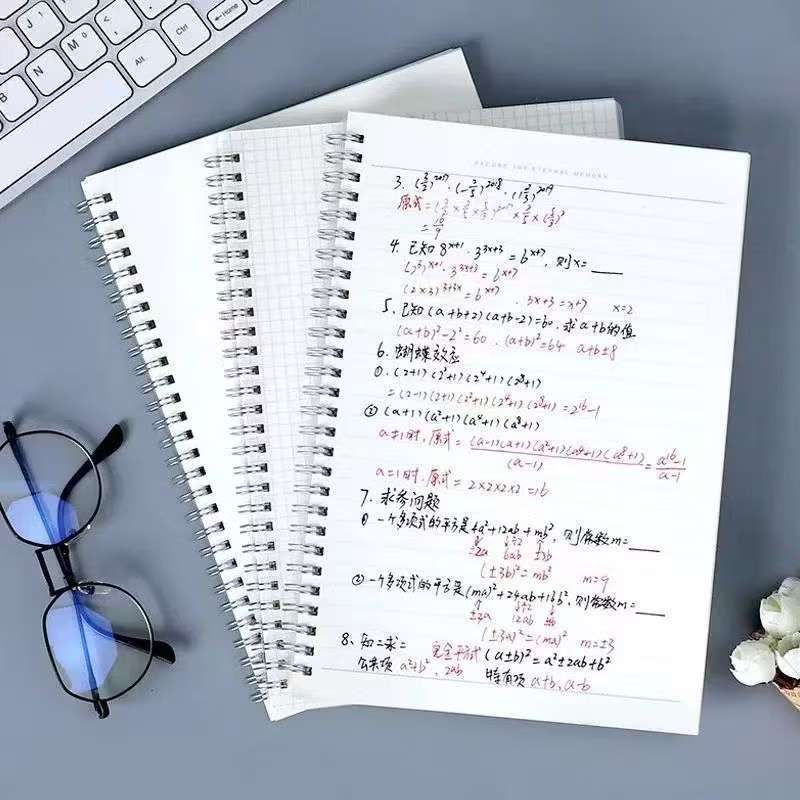 J
N
M
B
Alt
Alt
Ctrl
Home
RECORD THE ETERNAL MEMORY
3. (3/2)²⁰¹⁷ · (-2/5)²⁰¹⁸ · (1 2/3)²⁰¹⁹
原式 =
4. 已知 8ˣ⁺¹ · 3³ˣ⁺³ = 6ˣ⁺⁷, 则x= ____
(2³)ˣ⁺¹ · 3³ˣ⁺³ = 6ˣ⁺⁷
(2×3)³⁺³ˣ = 6ˣ⁺⁷ . 3x+3 = x+7 x=2
5. 已知 (a+b+2)(a+b-2)=60. 求a+b的值
(a+b)²-2²=60 . (a+b)²=64 a+b±8
6. 蝴蝶效应
①. (2+1)(2²+1)(2⁴+1)(2⁸+1)
= (2-1)(2+1)(2²+1)(2⁴+1)(2⁸+1) = 2¹⁶-1
② (a+1)(a²+1)(a⁴+1)(a⁸+1)
原式 = (a-1)(a+1)(a²+1)(a⁴+1)(a⁸+1)/(a-1) = a¹⁶-1/a-1
a=1时. 原式 = 2×2×2×2 =16
7. 求参问题
① 一个多项式的平方是4a²+12ab+mb², 则常数m= ____
±2a 6ab ±3b
(±3b)² = mb² m=9
② 一个多项式的平方是(ma)²+24ab+16b², 则常数m= ____
±3a 12ab
(±3a)² = (ma)² m=±3
8. 知二求二 完全平方式 (a±b)² = a²±2ab+b²
公共项 a²+b², 2ab 特有项 a+b, a-b